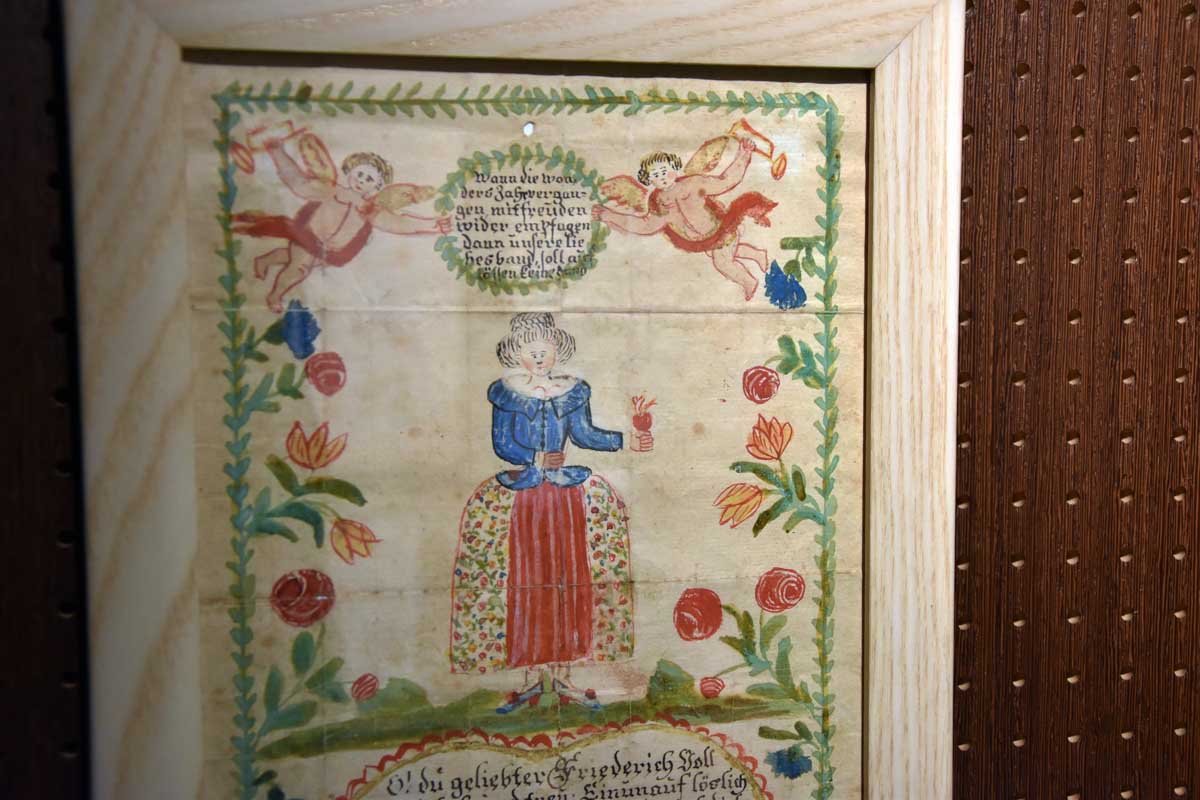 Wann die won
ders Zahr vergan-
gen mit freuden
wider empfagen
dann unsere lie
bes band, soll auf
lössen keine
O! du geliebter Friederich Voll
Einunauf löslich